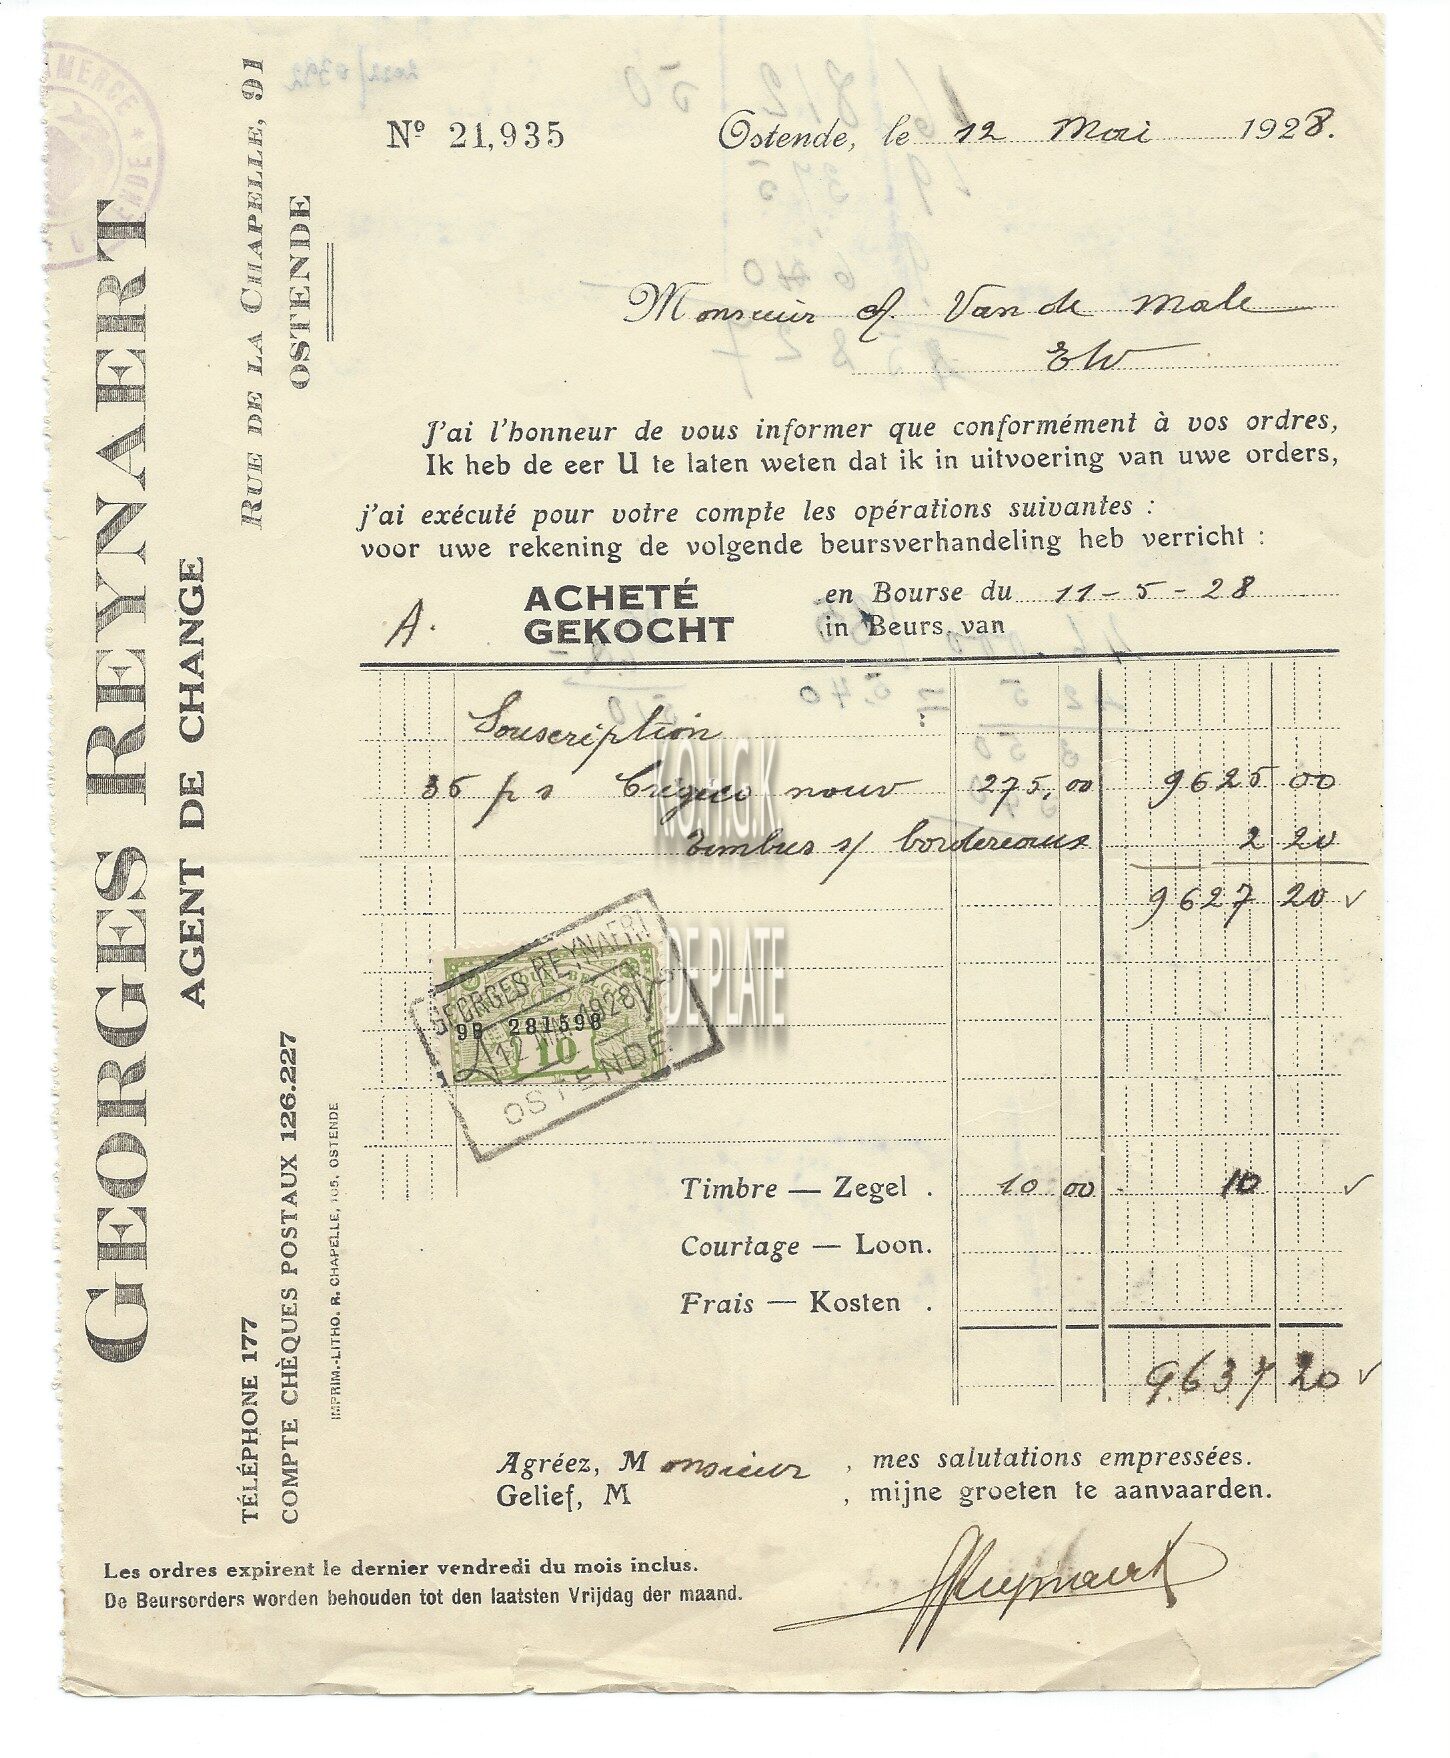 GEORGES REYNAERT
AGENT DE CHANGE
RUE DE LA CHAPELLE, 91
OSTENDE
TÉLÉPHONE 177
COMPTE CHÈQUES POSTAUX 126.227
IMPRIM.-LITHO. R. CHAPELLE, 105, OSTENDE
Nº 21,935
Ostende, le 12 Mai 1928.
Monsieur Van de Male
J'ai l'honneur de vous informer que conformément à vos ordres,
Ik heb de eer U te laten weten dat ik in uitvoering van uwe orders,
j'ai exécuté pour votre compte les opérations suivantes :
voor uwe rekening de volgende beursverhandeling heb verricht :
A.
ACHETÉ en Bourse du 11-5-28
GEKOCHT in Beurs van
Souscription
35 p s nouv 275,00 9625 00
Timbres s/ bordereaux 2 20
9627 20
K.O.H.G.K.
DE PLATE
GEORGES REYNAERT
9B 281598
12 MAI 1928
10
OSTENDE
Timbre — Zegel . 10 00 10
Courtage — Loon.
Frais — Kosten .
9.637 20
Agréez, Monsieur , mes salutations empressées.
Gelief, M , mijne groeten te aanvaarden.
GReynaert
Les ordres expirent le dernier vendredi du mois inclus.
De Beursorders worden behouden tot den laatsten Vrijdag der maand.